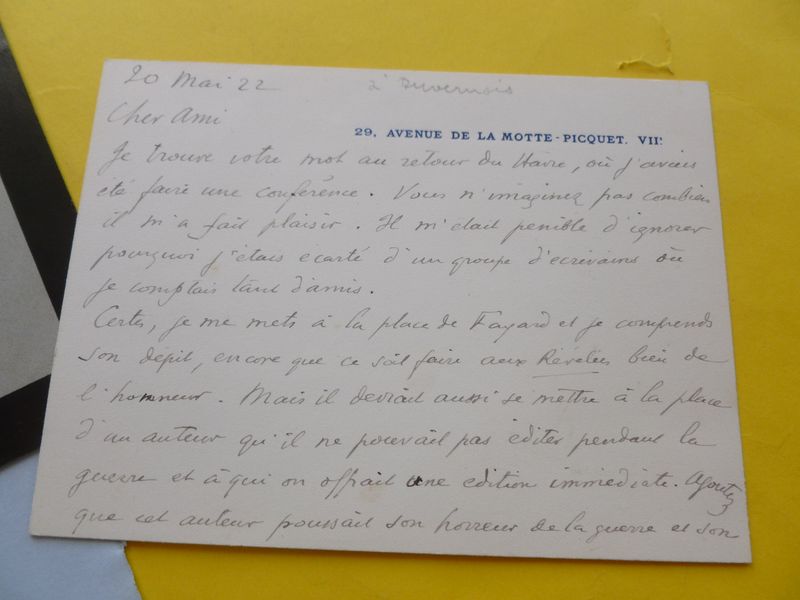 20 Mai 22
à Duvernois
Cher Ami
29, AVENUE DE LA MOTTE-PICQUET. VIIᵉ
Je trouve votre mot au retour du Havre, où j'avais
été faire une conférence. Vous n'imaginez pas combien
il m'a fait plaisir. Il m'était penible d'ignorer
pourquoi j'étais écarté d'un groupe d'écrivains où
je comptais tant d'amis.
Certes, je me mets à la place de Fayard et je comprends
son dépit, encore que ce soit faire aux Révélées bien de
l'honneur. Mais il devrait aussi se mettre à la place
d'un auteur qu'il ne pouvait pas éditer pendant la
guerre et à qui on offrait une édition immédiate. Ajoutez
que cet auteur poussait son horreur de la guerre et son